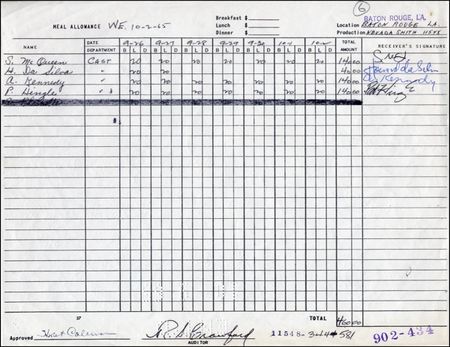 6
MEAL ALLOWANCE WE 10-2-65
Breakfast $
Lunch $
Dinner $
BATON ROUGE, LA.
Location BATON ROUGE LA.
Production NEVADA SMITH
NAME DATE DEPARTMENT 9-26 9-27 9-28 9-29 9-30 10-1 10-2 TOTAL AMOUNT RECEIVER'S SIGNATURE
B L D B L D B L D B L D B L D B L D B L D
S. McQueen CAST 20 20 20 20 20 20 20 14000
H. Da Silva " 20 20 20 20 20 20 20 14000 Howard da Silva
A. Kennedy " 20 20 20 20 20 20 20 14000 A Kennedy
P. Hingle " 20 20 20 20 20 20 20 14000 Pat Hingle
37 TOTAL
Approved
AUDITOR
11548-3
902-434